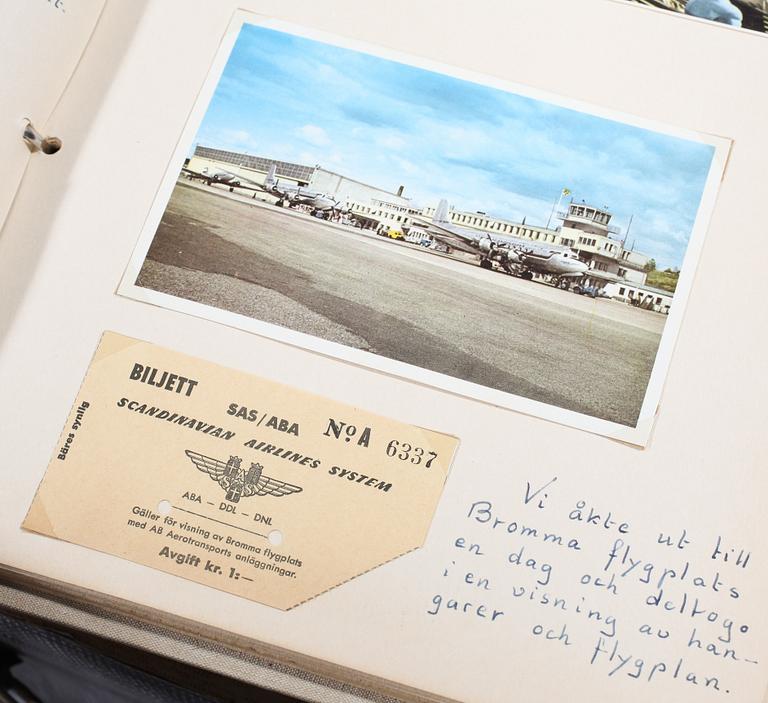 BILJETT
SAS/ABA
Nº A 6337
SCANDINAVIAN AIRLINES SYSTEM
SAS
ABA — DDL — DNL
Gäller för visning av Bromma flygplats
med AB Aerotransports anläggningar.
Avgift kr. 1:—
Bäres synlig
Vi åkte ut till
Bromma flygplats
en dag och deltogo
i en visning av han-
garer och flygplan.